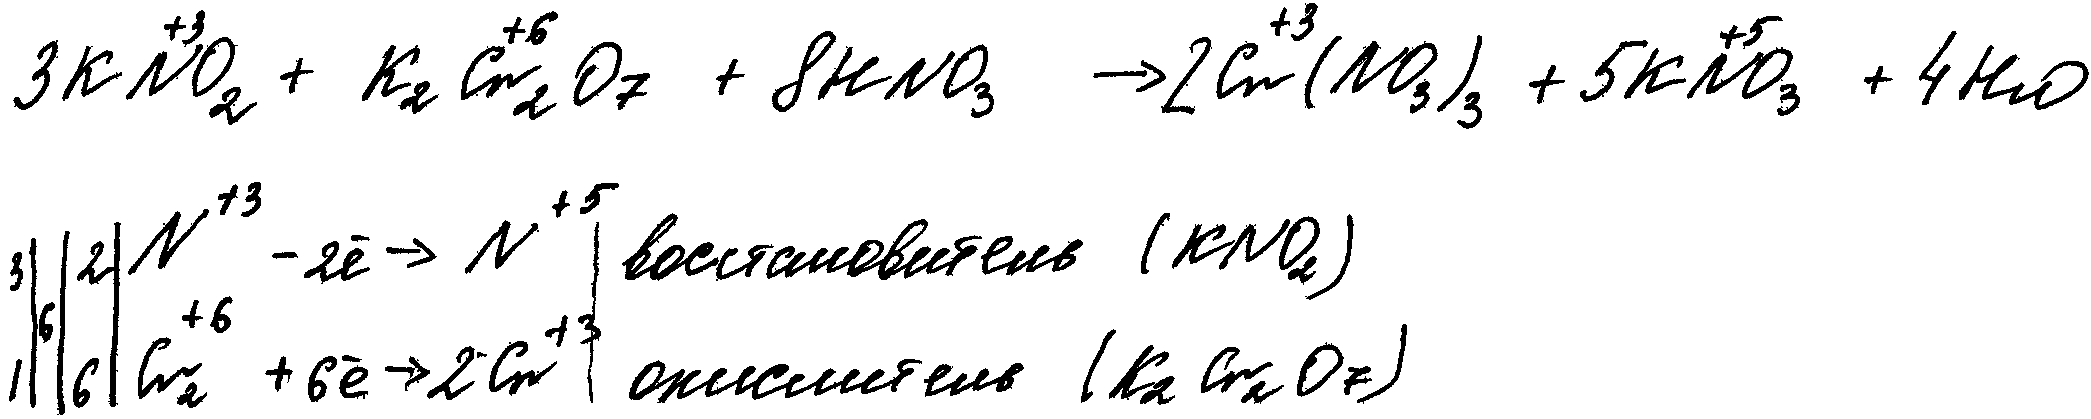 3KN⁺³O₂ + K₂Cr⁺⁶₂O₇ + 8HNO₃ → 2Cr⁺³(NO₃)₃ + 5KN⁺⁵O₃ + 4H₂O
3 | 6 | 2 | N⁺³ - 2ē → N⁺⁵ | восстановитель (KNO₂)
1 | 6 | Cr₂⁺⁶ + 6ē → 2Cr⁺³ | окислитель (K₂Cr₂O₇)